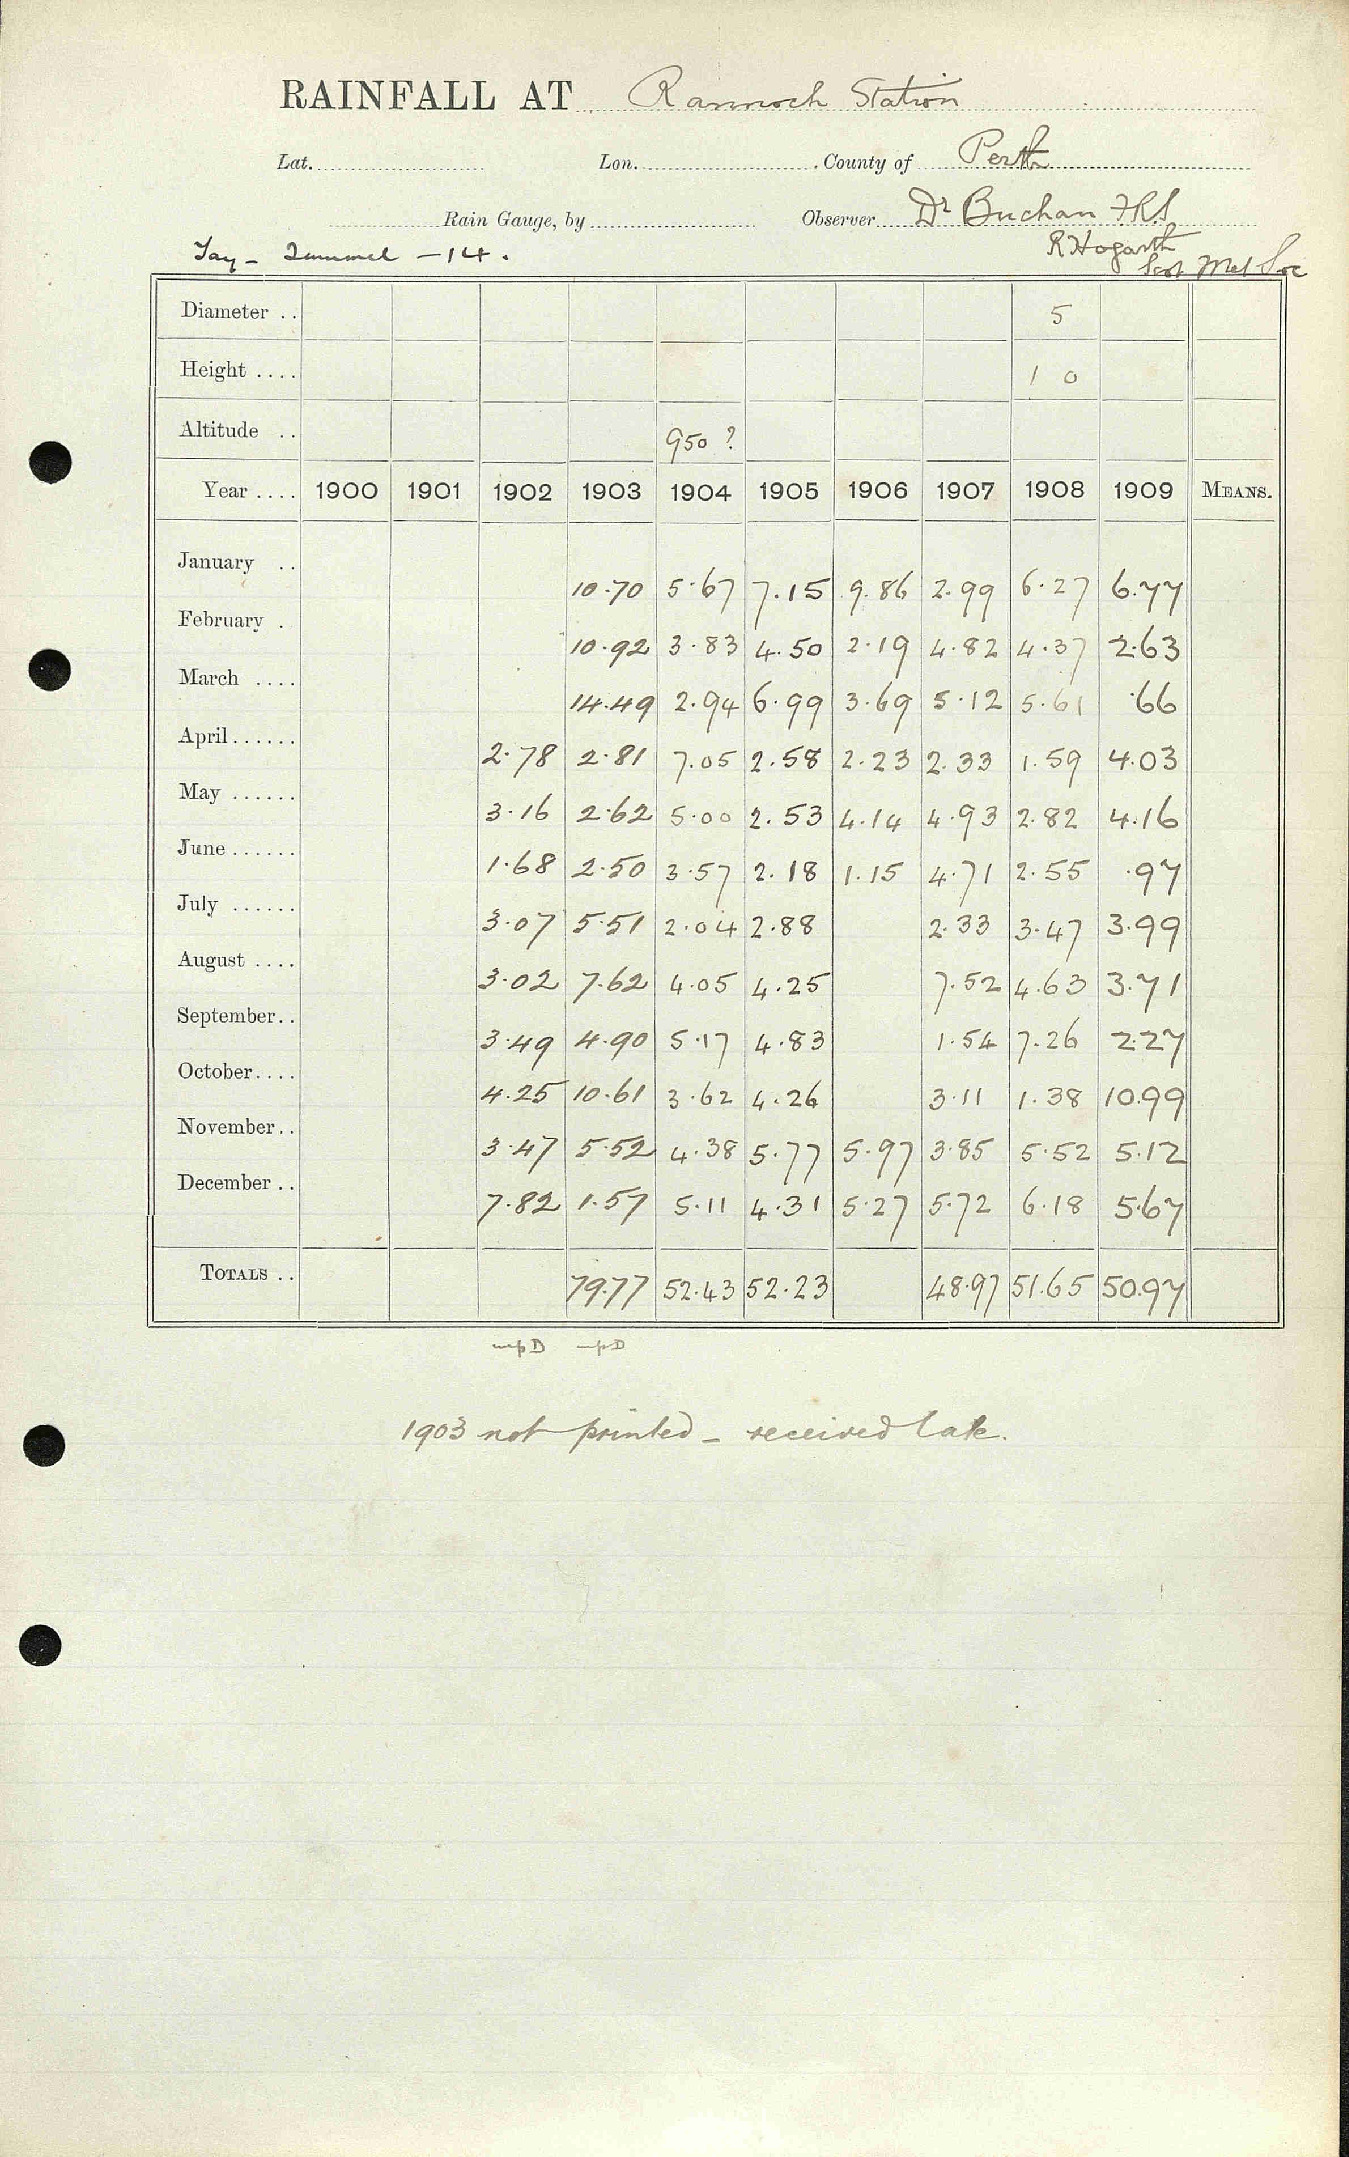 RAINFALL AT Rannoch Station
Lat. Lon. County of Perth
Rain Gauge, by Observer Dr Buchan F.R.S.
R Hogarth
Tay - Tummel - 14.
Scot Met Soc
Diameter .. 5
Height .... 1 0
Altitude .. 950 ?
Year .... 1900 1901 1902 1903 1904 1905 1906 1907 1908 1909 MEANS.
January .. 10.70 5.67 7.15 9.86 2.99 6.27 6.77
February . 10.92 3.83 4.50 2.19 4.82 4.37 2.63
March .... 14.49 2.94 6.99 3.69 5.12 5.61 .66
April...... 2.78 2.81 7.05 2.58 2.23 2.33 1.59 4.03
May ...... 3.16 2.62 5.00 2.53 4.14 4.93 2.82 4.16
June...... 1.68 2.50 3.57 2.18 1.15 4.71 2.55 .97
July ...... 3.07 5.51 2.04 2.88 2.33 3.47 3.99
August .... 3.02 7.62 4.05 4.25 7.52 4.63 3.71
September.. 3.49 4.90 5.17 4.83 1.54 7.26 2.27
October.... 4.25 10.61 3.62 4.26 3.11 1.38 10.99
November.. 3.47 5.52 4.38 5.77 5.97 3.85 5.52 5.12
December .. 7.82 1.57 5.11 4.31 5.27 5.72 6.18 5.67
TOTALS .. 79.77 52.43 52.23 48.97 51.65 50.97
1903 not printed - received late.